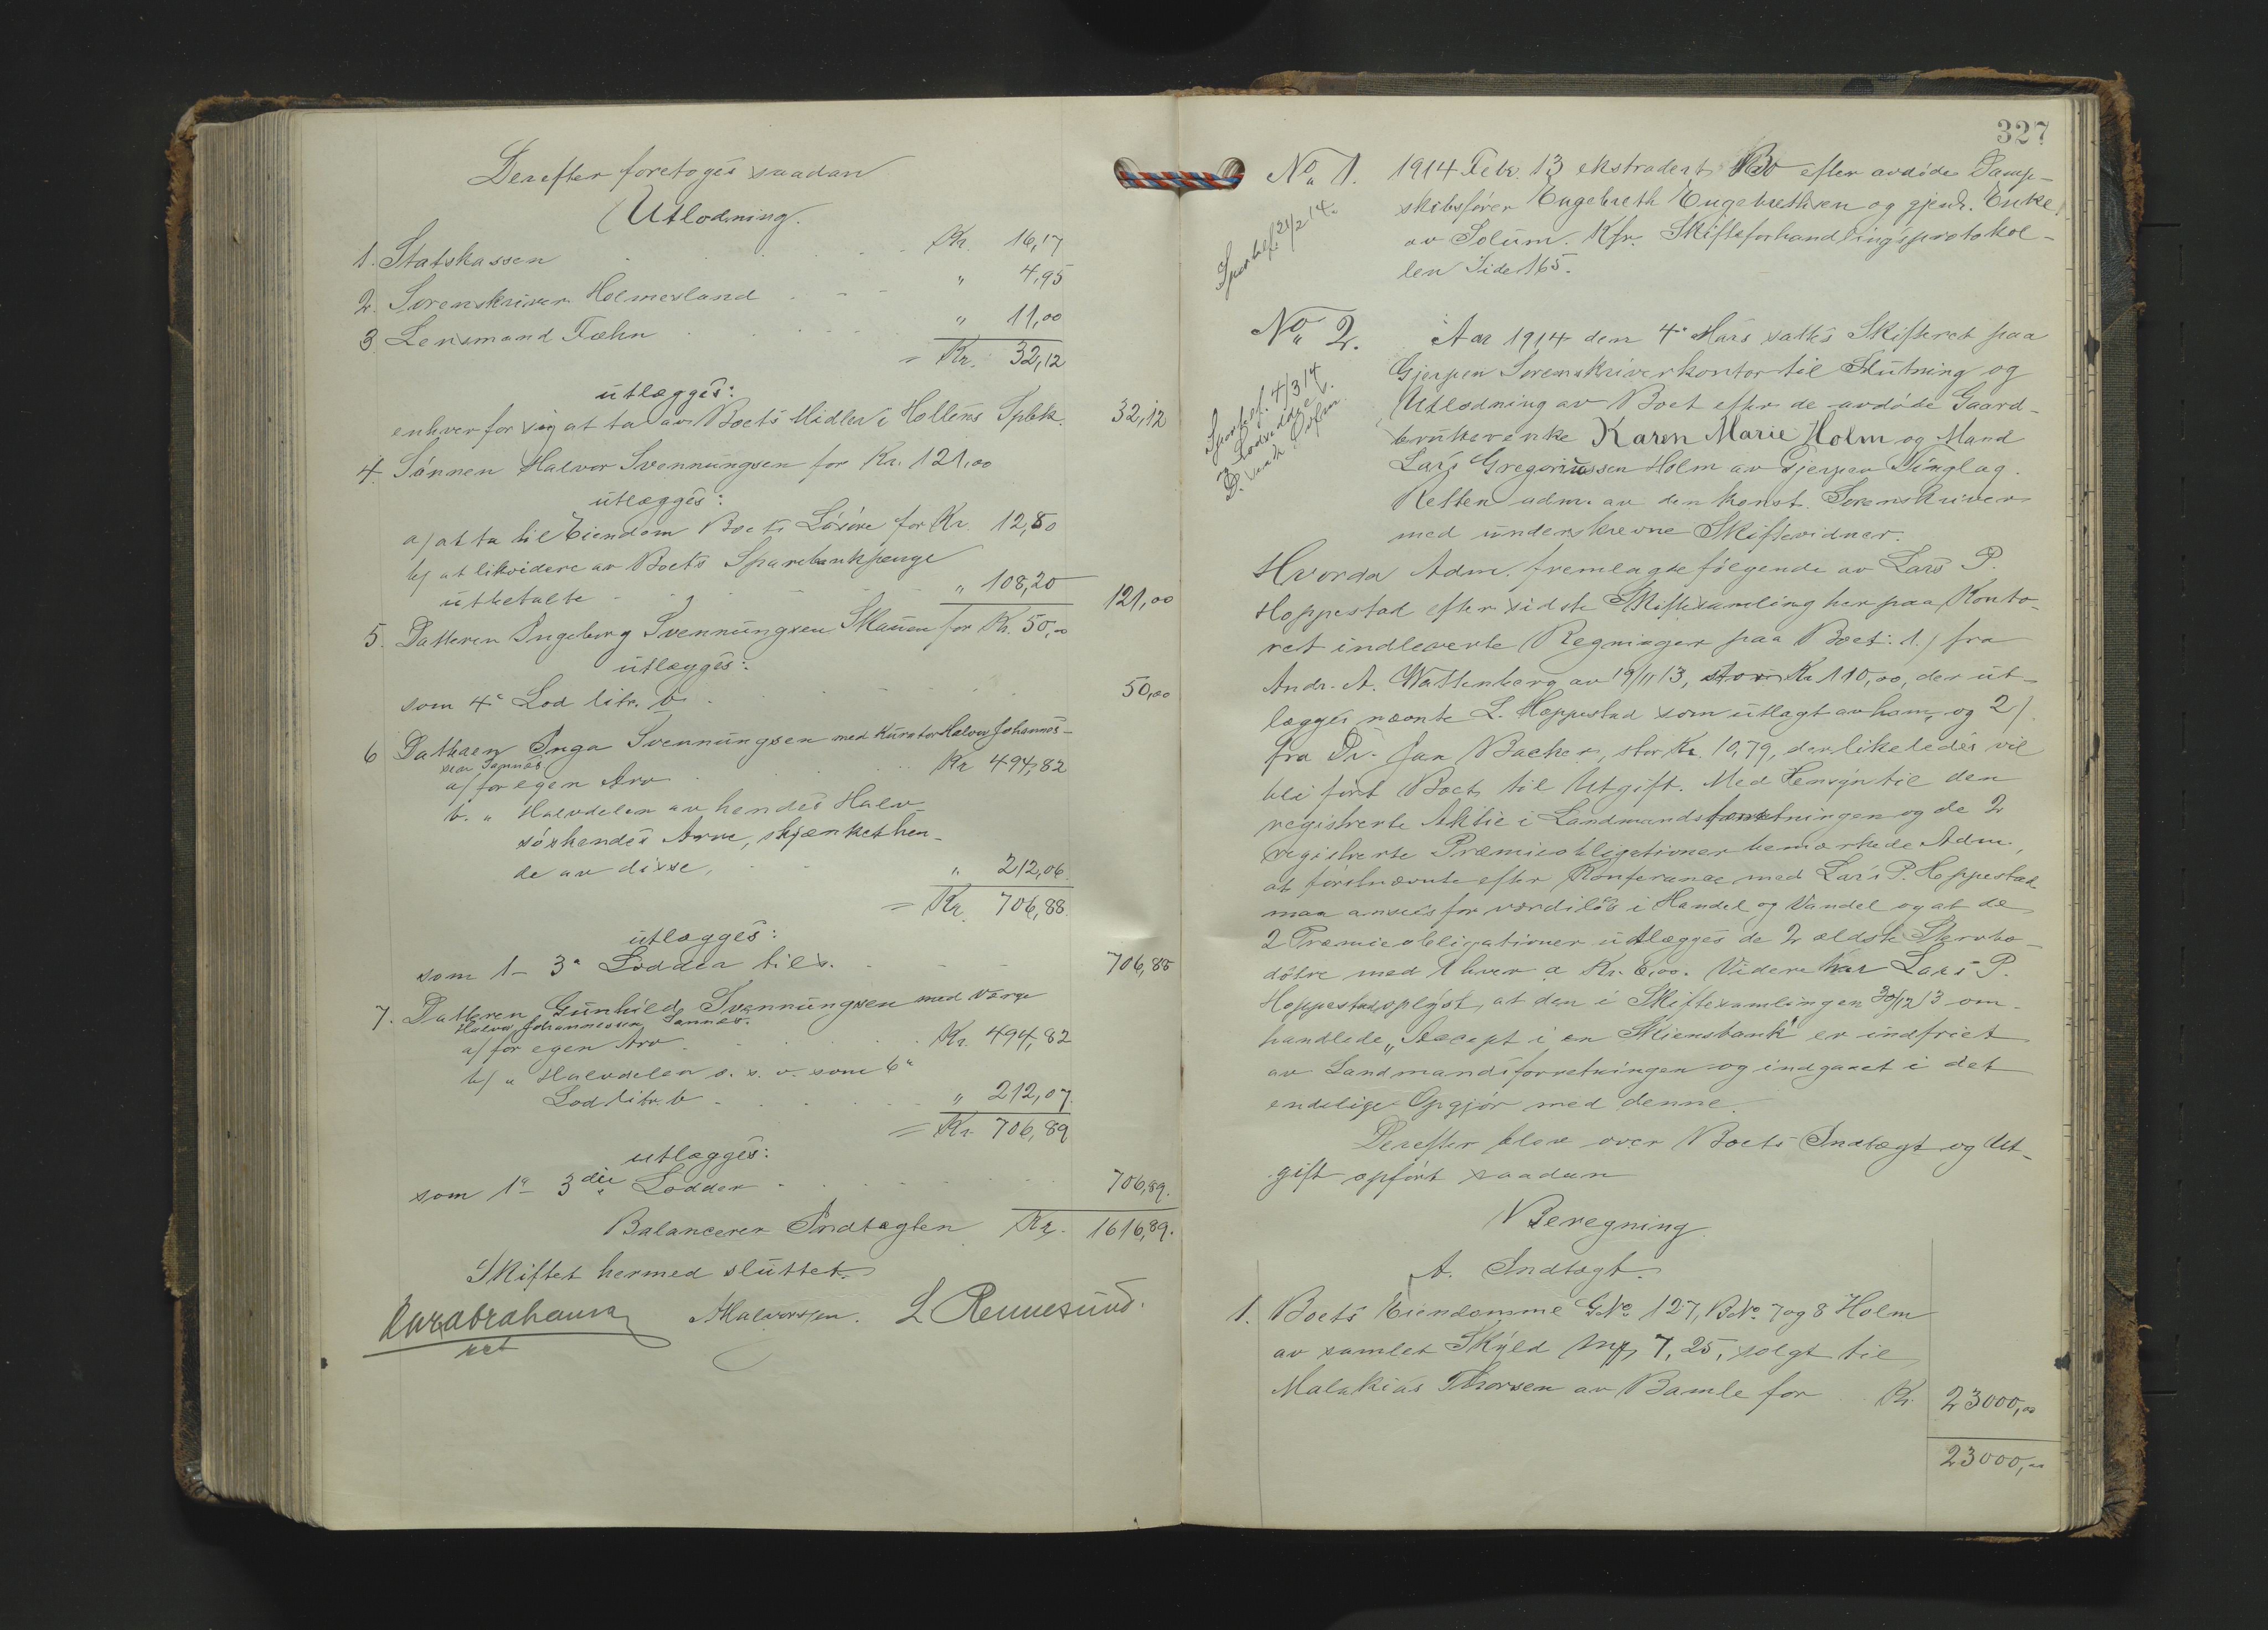 Derefter foretoges saadan
Utlodning.
1. Statskassen Kr. 16,17
2. Sorenskriver Holmesland " 4,95
3 Lensmand Fæhn " 11,00
= Kr. 32,12
utlægges:
enhver for sig at ta av Boets Midler i Hollens Spbk. 32,12
4. Sønnen Halvor Svennungsen for Kr. 121,00
utlægges:
a/ at ta til Eiendom Boets Løsøre for Kr. 12,80
b/ at likvidere av Boets Sparebankpenge
utbetalte " 108,20 121,00
5. Datteren Ingeborg Svennungsen Skauen for Kr. 50,00
utlægges:
som 4de Lod litr. b 50,00
6 Datteren Inga Svennungsen med Kurator Halvor Johannes-
sen Sannes.
a/ for egen Arv Kr 494,82
b. " Halvdelen av hendes Halv-
søskendes Arve, skjænket hen-
de av disse, " 212,06.
= Kr. 706,88.
utlægges:
som 1- 3" Lodder tils. 706,88
7. Datteren Gunhild Svennungsen med Værge
Halvor Johannessen Sannes.
a/ for egen Arv Kr. 494,82
b/ " Halvdelen o. s. v. som 6"
Lod litr. b " 212,07.
= Kr. 706,89
utlægges:
som 1- 3die Lodder 706,89.
Balancerer Indtægten Kr. 1616,89.
Skiftet hermed sluttet.
Halvorsen. L Rennesund.
327
No 1. 1914 Febr. 13 ekstradert Bo efter avdøde Damp-
skibsfører Engebreth Engebrethsen og gjenl. Enke
av Solum. Kfr. Skifteforhandlingsprotokol-
len Side 165.
No 2. Aar 1914 den 4de Mars sattes Skifteret paa
Gjerpen Sorenskriverkontor til Slutning og
Utlodning av Boet efter de avdøde Gaard-
brukerenke Karen Marie Holm og Mand
Lars Gregoriussen Holm av Gjerpen Tinglag.
Retten adm. av den konst. Sorenskriver
med underskrevne Skiftevidner.
Hvorda Adm. fremlagde følgende av Lars P.
Hoppestad efter sidste Skiftesamling her paa Konto-
ret indleverte Regninger paa Boet: 1./ fra
Andr. A. Wattenberg av 19/11 13, stor Kr 110,00, der ut-
lægges nævnte L. Hoppestad som utlagt av ham, og 2/
fra Dr. Jan Backer, stor Kr. 10,79, der likeledes vil
bli ført Boet til Utgift. Med Hensyn til den
registrerte Aktie i Landmandsforretningen og de 2
registrerte Præmieobligationer bemærkede Adm.,
at førstnævnte efter Konferance med Lars P. Hoppestad
maa ansees for værdiløs i Handel og Vandel og at de
2 Præmieobligationer utlægges de 2 ældste Stervbo-
døtre med 1 hver a Kr. 6,00. Videre har Lars P.
Hoppestad oplyst, at den i Skiftesamlingen 30/12 13 om-
handlede "Accept i en Skiensbank" er indfriet
av Landmandsforretningen og indgaaet i det
endelige Opgjør med denne.
Derefter blev over Boets Indtægt og Ut-
gift opført saadan
Beregning
A. Indtægt.
1. Boets Eiendomme GNo 127, BNo 7 og 8 Holm
av samlet Skyld Mk 7,25, solgt til
Malakias Thorsen av Bamle for Kr. 23000,00
23000,00